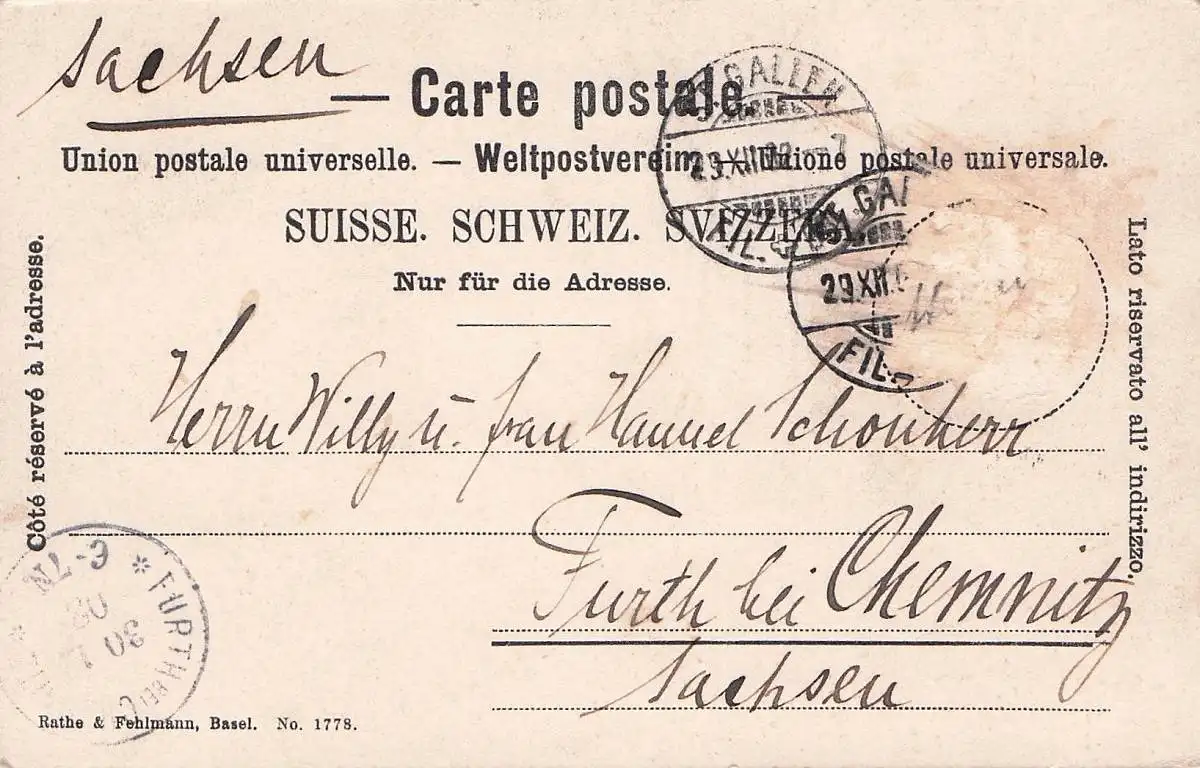 Sachsen
— Carte postale. —
Union postale universelle. — Weltpostverein. — Unione postale universale.
SUISSE. SCHWEIZ. SVIZZERA.
Nur für die Adresse.
Côté réservé à l'adresse.
Lato riservato all' indirizzo.
ST. GALLEN
29.XII.02. — 7
FIL.
ST. GAL
29.XII.0
FIL.
Herrn Willy u. Frau Hannel Schönherr
Furth bei Chemnitz
Sachsen
* FURTH BEI C
6-7N
30
02
Rathe & Fehlmann, Basel. No. 1778.